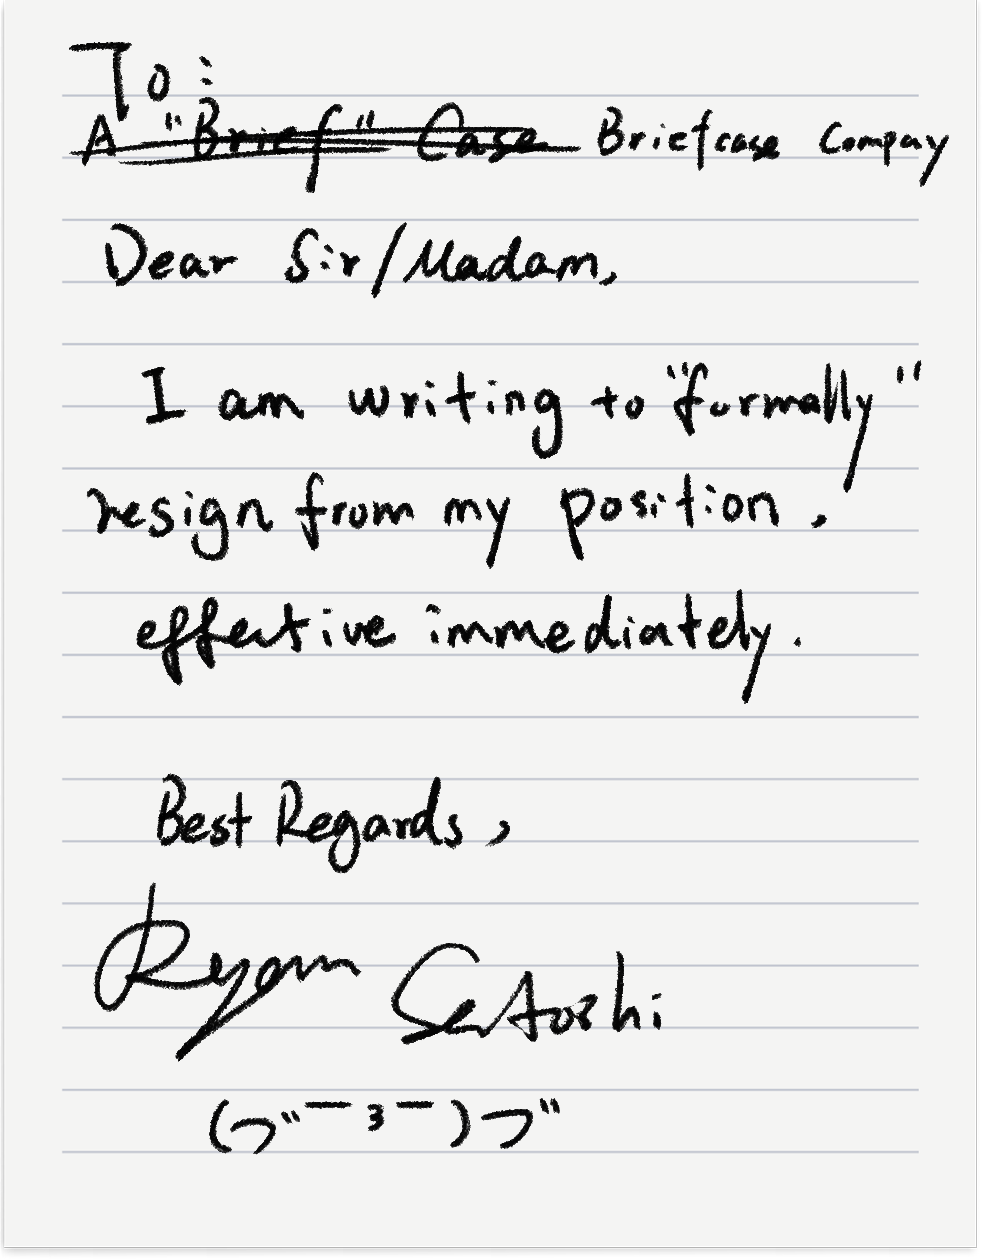 To:
A "Brief" Case Briefcase Compay
Dear Sir/Madam,
I am writing to "formally"
resign from my position,
effective immediately.
Best Regards,
Ryan Satoshi
(づ ̄ ³ ̄)づ